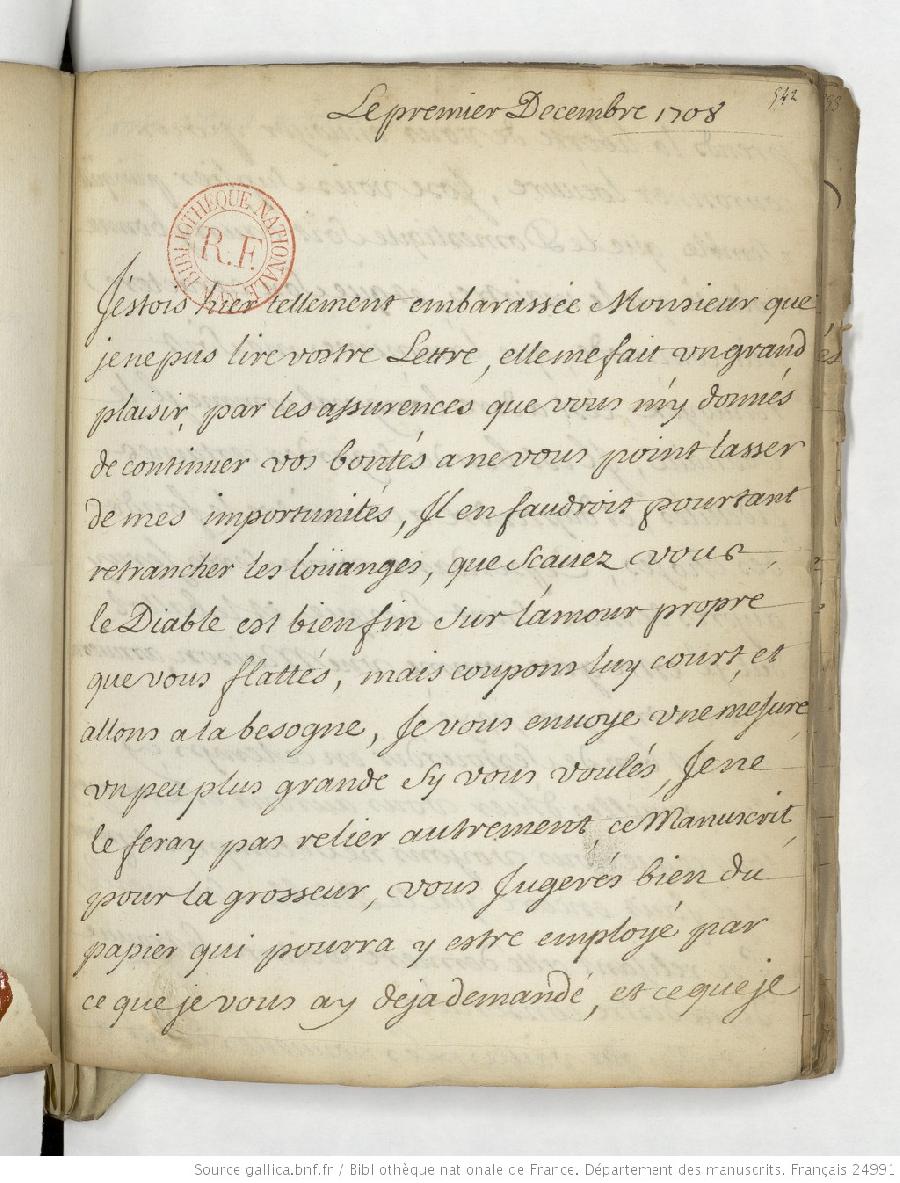 542
Le premier Decembre 1708
BIBLIOTHÈQUE NATIONALE
R.F.
J'estois hier tellement embarassée Monsieur que
je ne pus lire vostre Lettre, elle me fait un grand
plaisir, par les assurences que vous m'y donnés
de continuer vos bontés a ne vous point lasser
de mes importunités, Il en faudroit pourtant
retrancher les loüanges, que scauez vous,
le Diable est bien fin sur l'amour propre
que vous flattés, mais coupons luy court, et
allons a la besogne, Je vous enuoye vne mesure
vn peu plus grande sy vous voulés, Je ne
le feray pas relier autrement, ce Manuscrit,
pour la grosseur, vous Jugerés bien du
papier qui pourra y estre employé par
ce que je vous ay deja demandé, et ce que je
Source gallica.bnf.fr / Bibliothèque nationale de France. Département des manuscrits. Français 24991